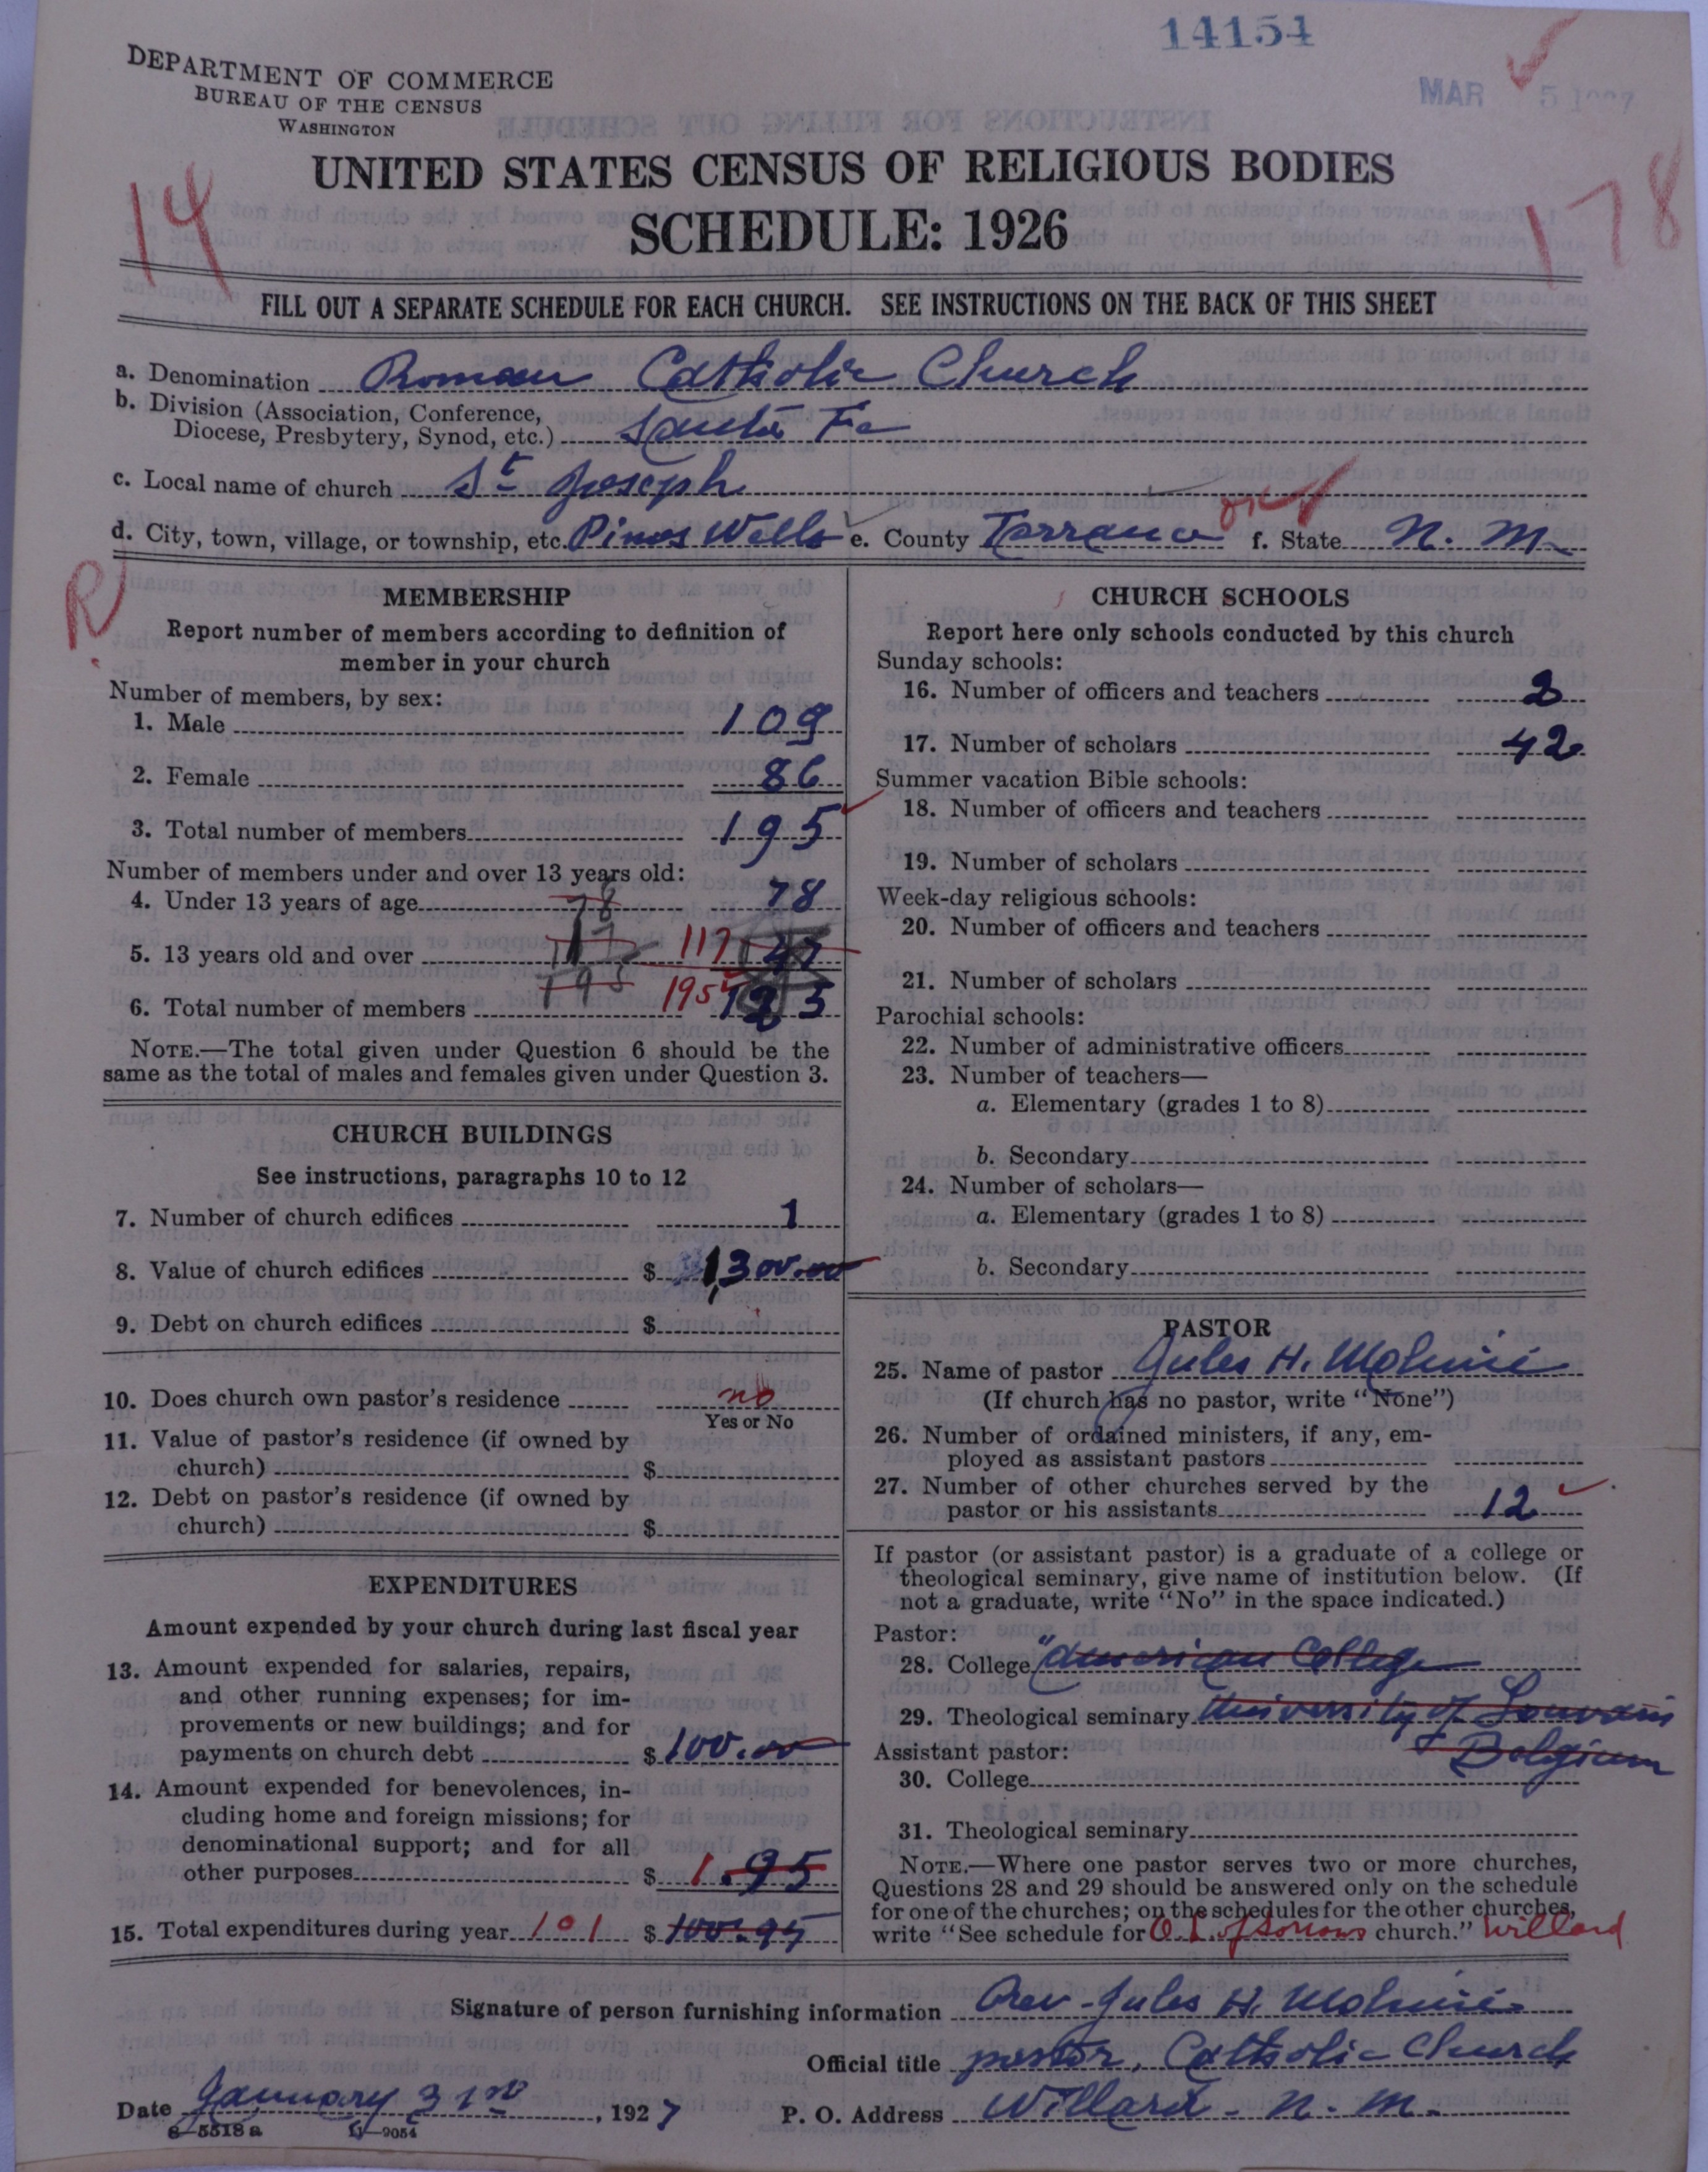 14154
MAR 5 1927
DEPARTMENT OF COMMERCE
BUREAU OF THE CENSUS
WASHINGTON
UNITED STATES CENSUS OF RELIGIOUS BODIES
SCHEDULE: 1926
14
178
FILL OUT A SEPARATE SCHEDULE FOR EACH CHURCH. SEE INSTRUCTIONS ON THE BACK OF THIS SHEET
a. Denomination Roman Catholic Church
b. Division (Association, Conference,
Diocese, Presbytery, Synod, etc.) Santa Fe
c. Local name of church St Joseph
OK
d. City, town, village, or township, etc. Pinos Wells e. County Torrance f. State N. M.
R
MEMBERSHIP
Report number of members according to definition of
member in your church
Number of members, by sex:
1. Male 109
2. Female 86
3. Total number of members 195
Number of members under and over 13 years old:
4. Under 13 years of age 78 78
5. 13 years old and over 117 117
6. Total number of members 195 195
NOTE.—The total given under Question 6 should be the
same as the total of males and females given under Question 3.
CHURCH BUILDINGS
See instructions, paragraphs 10 to 12
7. Number of church edifices 1
8. Value of church edifices $ 1,300.00
9. Debt on church edifices $
10. Does church own pastor's residence no
Yes or No
11. Value of pastor's residence (if owned by
church) $
12. Debt on pastor's residence (if owned by
church) $
EXPENDITURES
Amount expended by your church during last fiscal year
13. Amount expended for salaries, repairs,
and other running expenses; for im-
provements or new buildings; and for
payments on church debt $ 100.00
14. Amount expended for benevolences, in-
cluding home and foreign missions; for
denominational support; and for all
other purposes $ 1 .95
15. Total expenditures during year 101 $ 100.95
CHURCH SCHOOLS
Report here only schools conducted by this church
Sunday schools:
16. Number of officers and teachers 2
17. Number of scholars 42
Summer vacation Bible schools:
18. Number of officers and teachers
19. Number of scholars
Week-day religious schools:
20. Number of officers and teachers
21. Number of scholars
Parochial schools:
22. Number of administrative officers
23. Number of teachers—
a. Elementary (grades 1 to 8)
b. Secondary
24. Number of scholars—
a. Elementary (grades 1 to 8)
b. Secondary
PASTOR
25. Name of pastor Jules H. Molinié
(If church has no pastor, write "None")
26. Number of ordained ministers, if any, em-
ployed as assistant pastors
27. Number of other churches served by the
pastor or his assistants 12
If pastor (or assistant pastor) is a graduate of a college or
theological seminary, give name of institution below. (If
not a graduate, write "No" in the space indicated.)
Pastor:
28. College "American College
29. Theological seminary University of Louvain
Belgium
Assistant pastor:
30. College
31. Theological seminary
NOTE.—Where one pastor serves two or more churches,
Questions 28 and 29 should be answered only on the schedule
for one of the churches; on the schedules for the other churches,
write "See schedule for O. L. of Sorrows church." Willard
Signature of person furnishing information Rev. Jules H. Molinié
Official title pastor, Catholic Church
Date January 31st, 1927 P. O. Address Willard - N. M.
8-5518a 11-9054